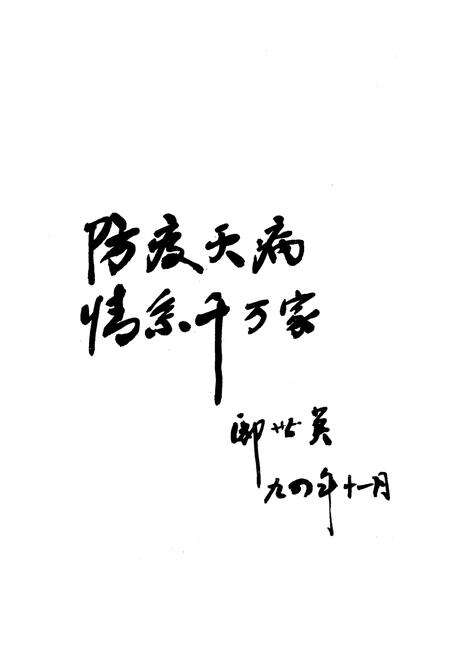 防疫灭病
情系千万家
世英
九四年十一月